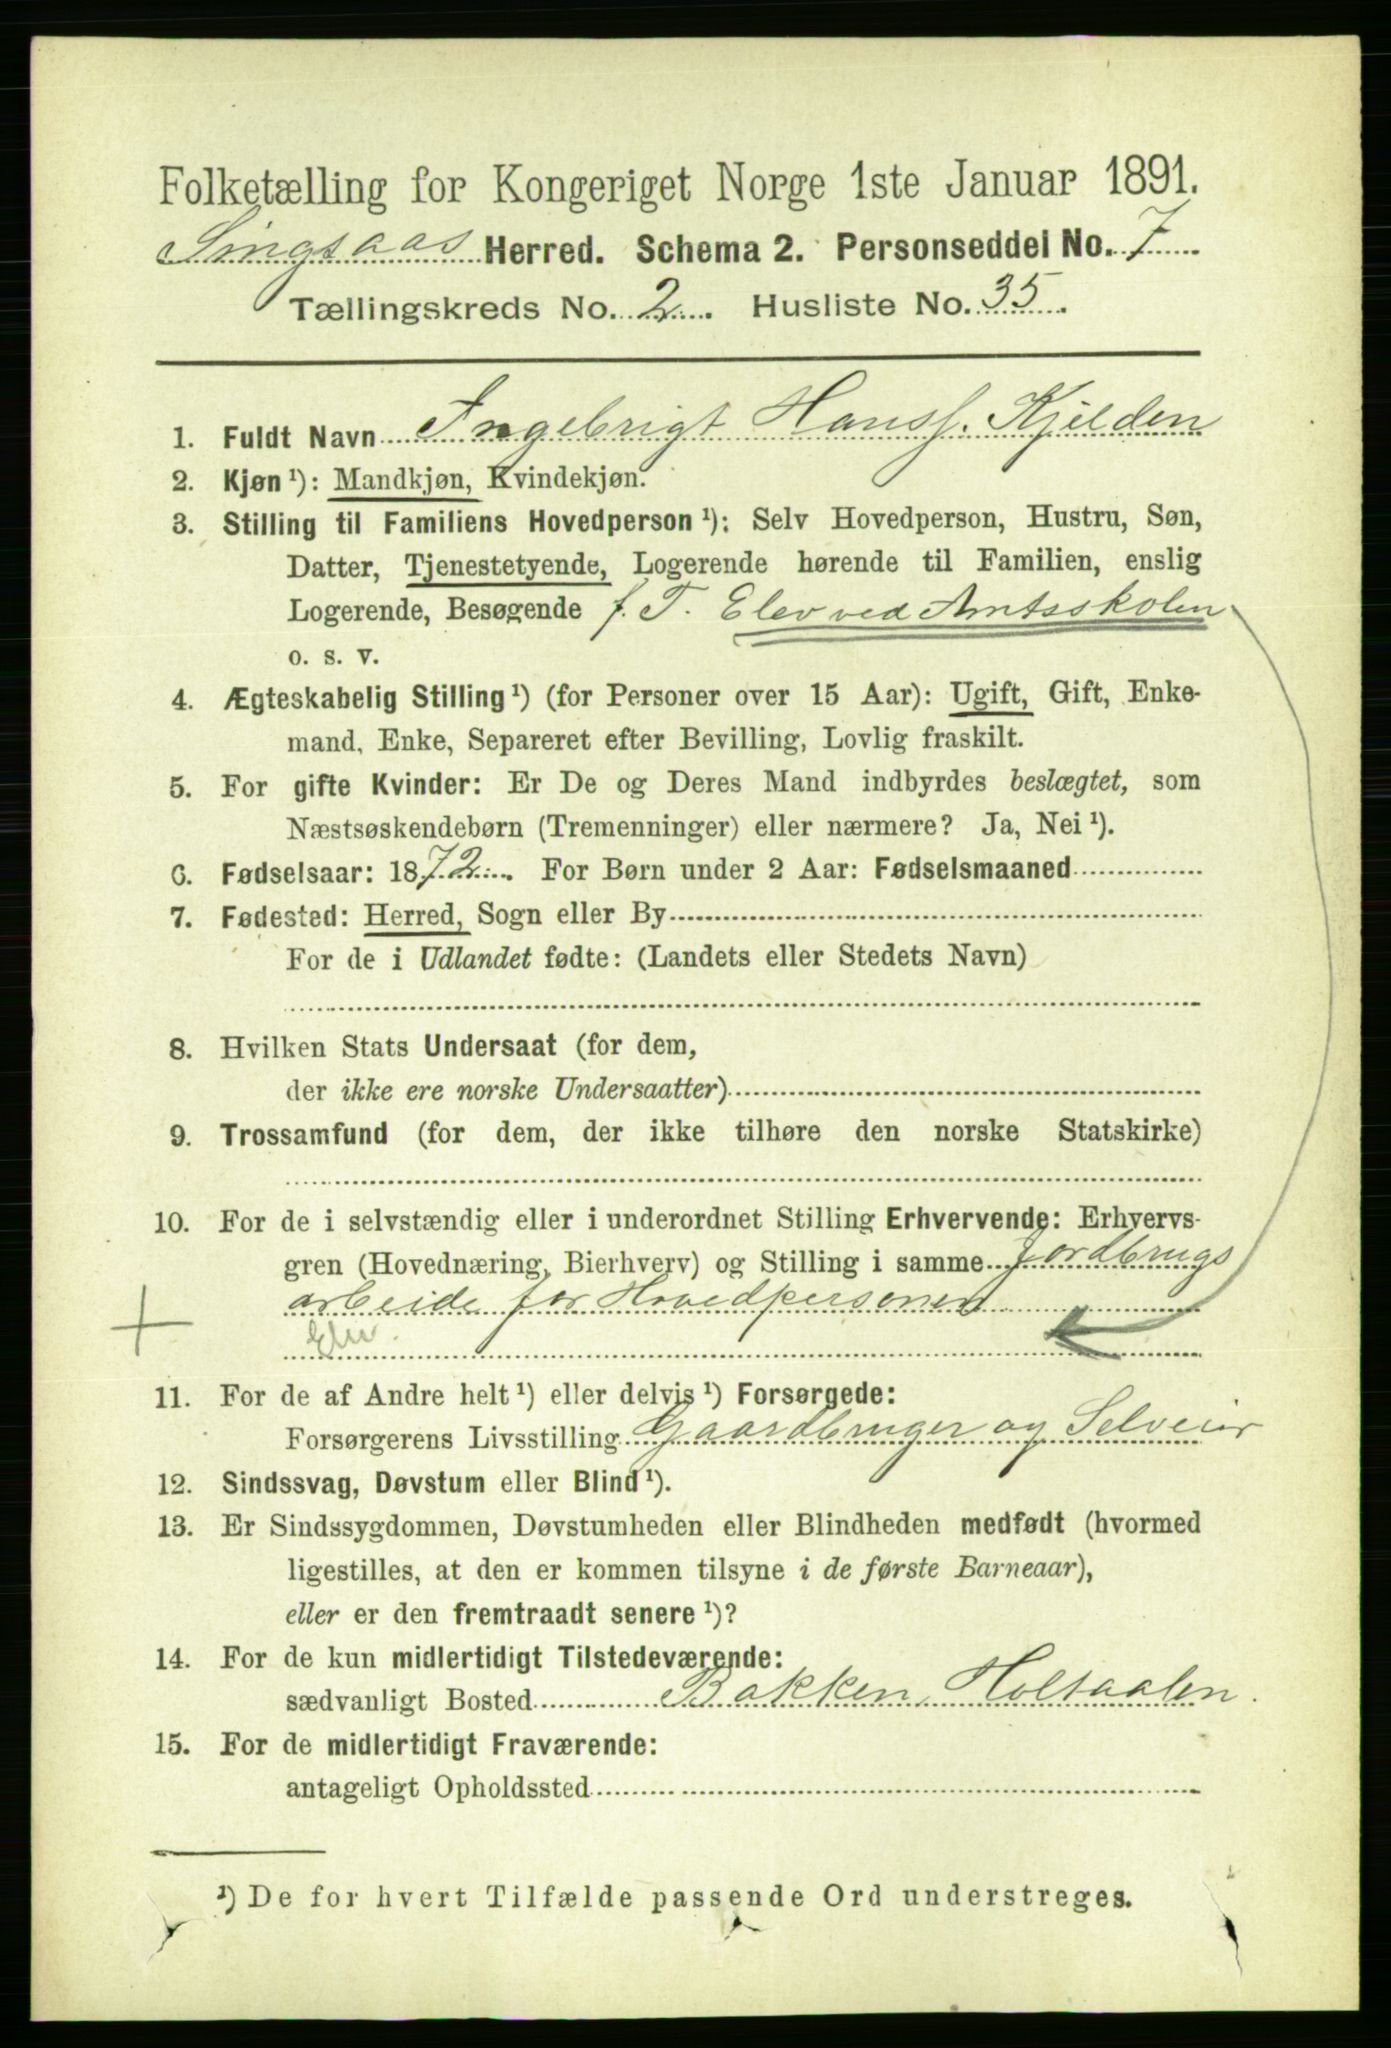 Folketælling for Kongeriget Norge 1ste Januar 1891.
Singsaas Herred. Schema 2. Personseddel No. 7
Tællingskreds No. 2. Husliste No. 35.
1. Fuldt Navn Ingebrigt Hanss. Kjelden
2. Kjøn ¹): Mandkjøn, Kvindekjøn.
3. Stilling til Familiens Hovedperson ¹): Selv Hovedperson, Hustru, Søn,
Datter, Tjenestetyende, Logerende hørende til Familien, enslig
Logerende, Besøgende f. T. Elev ved Amtsskolen
o. s. v.
4. Ægteskabelig Stilling ¹) (for Personer over 15 Aar): Ugift, Gift, Enke-
mand, Enke, Separeret efter Bevilling, Lovlig fraskilt.
5. For gifte Kvinder: Er De og Deres Mand indbyrdes beslægtet, som
Næstsøskendebørn (Tremenninger) eller nærmere? Ja, Nei ¹).
6. Fødselsaar: 1872. For Børn under 2 Aar: Fødselsmaaned
7. Fødested: Herred, Sogn eller By
For de i Udlandet fødte: (Landets eller Stedets Navn)
8. Hvilken Stats Undersaat (for dem,
der ikke ere norske Undersaatter)
9. Trossamfund (for dem, der ikke tilhøre den norske Statskirke)
10. For de i selvstændig eller i underordnet Stilling Erhvervende: Erhvervs-
gren (Hovednæring, Bierhverv) og Stilling i samme Jordbrugs
arbeide for Hovedpersonen
Elev.
11. For de af Andre helt ¹) eller delvis ¹) Forsørgede:
Forsørgerens Livsstilling Gaardbruger og Selveier
12. Sindssvag, Døvstum eller Blind ¹).
13. Er Sindssygdommen, Døvstumheden eller Blindheden medfødt (hvormed
ligestilles, at den er kommen tilsyne i de første Barneaar),
eller er den fremtraadt senere ¹)?
14. For de kun midlertidigt Tilstedeværende:
sædvanligt Bosted Bakken, Holtaalen.
15. For de midlertidigt Fraværende:
antageligt Opholdssted
¹) De for hvert Tilfælde passende Ord understreges.